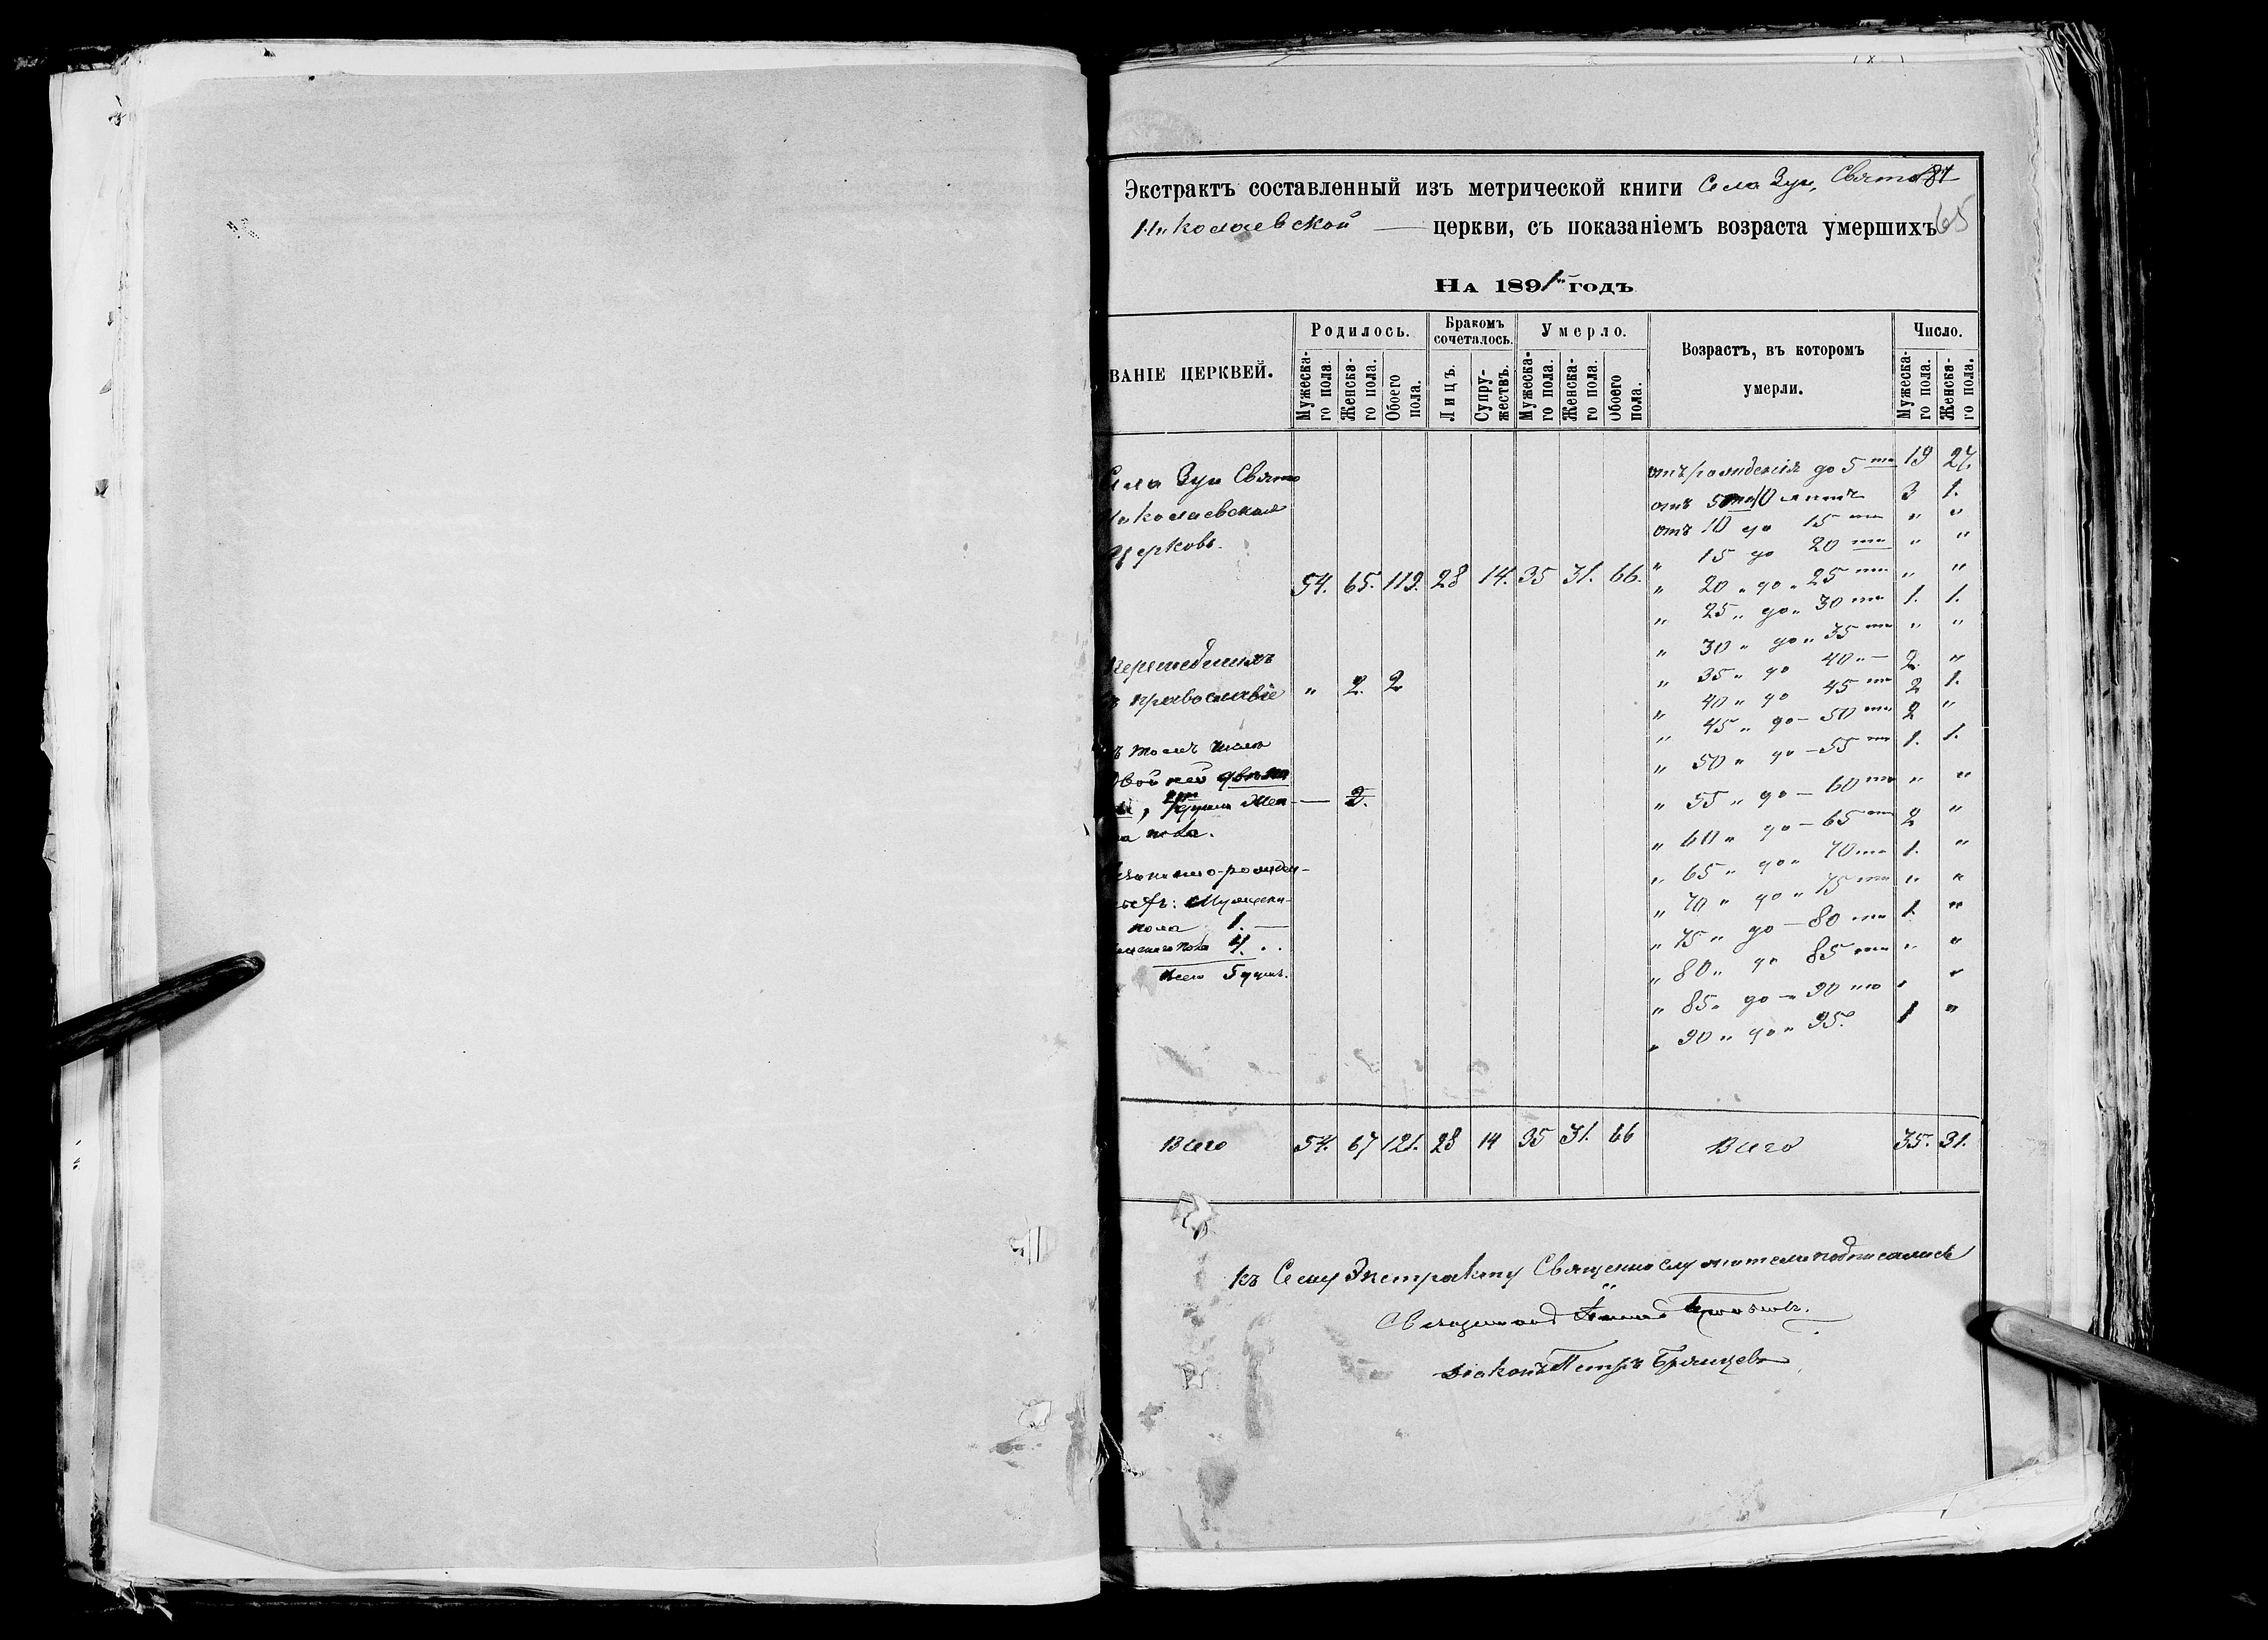 Экстрактъ составленный изъ метрической книги Села Зуи, Свято 87
Николаевской — церкви, съ показаніемъ возраста умершихъ 65
На 1891 годъ
ВАНІЕ ЦЕРКВЕЙ.
Родилось.
Бракомъ сочеталось.
Умерло.
Возрастъ, въ которомъ умерли.
Число.
Мужеска-го пола.
Женска-го пола.
Обоего пола.
Лицъ.
Супру-жествъ.
Мужеска-го пола.
Женска-го пола.
Обоего пола.
Мужеска-го пола.
Женска-го пола.
Села Зуи Свято
Николаевская
Церковь.
54. 65. 119. 28 14. 35 31. 66.
Перешедшихъ
православіе " 2. 2
томъ числѣ
— 2.
пола.
пола 1. —
пола 4. . .
Всего 5 душъ.
отъ рожденія до 5 ти 19 27.
отъ 5 ти 10 3 1.
отъ 10 до 15 ти " "
" 15 до 20 ти " "
" 20 " до " 25 ти " "
" 25 " до " 30 ти 1. 1.
" 30 " до " 35 ти " "
" 35 " до 40 " — 2. "
" 40 " до 45 ти 2 1.
" 45 " до — 50 ти 2 "
" 50 " до — 55 ти 1. 1.
" 55 " до — 60 ти " "
" 60 " до — 65 ти 2 "
" 65 " до " 70 ти 1. "
" 70 " до " 75 ти " "
" 75 " до — 80 ти 1. "
" 80 " до 85 ти " "
" 85 " до — 90 то " "
" 90 " до " 95. 1 "
Всего 54. 67 121. 28 14 35 31. 66 Всего 35. 31.
Къ Сему Экстракту Священно служители подписались
Священникъ
Діаконъ Петръ Брянцевъ